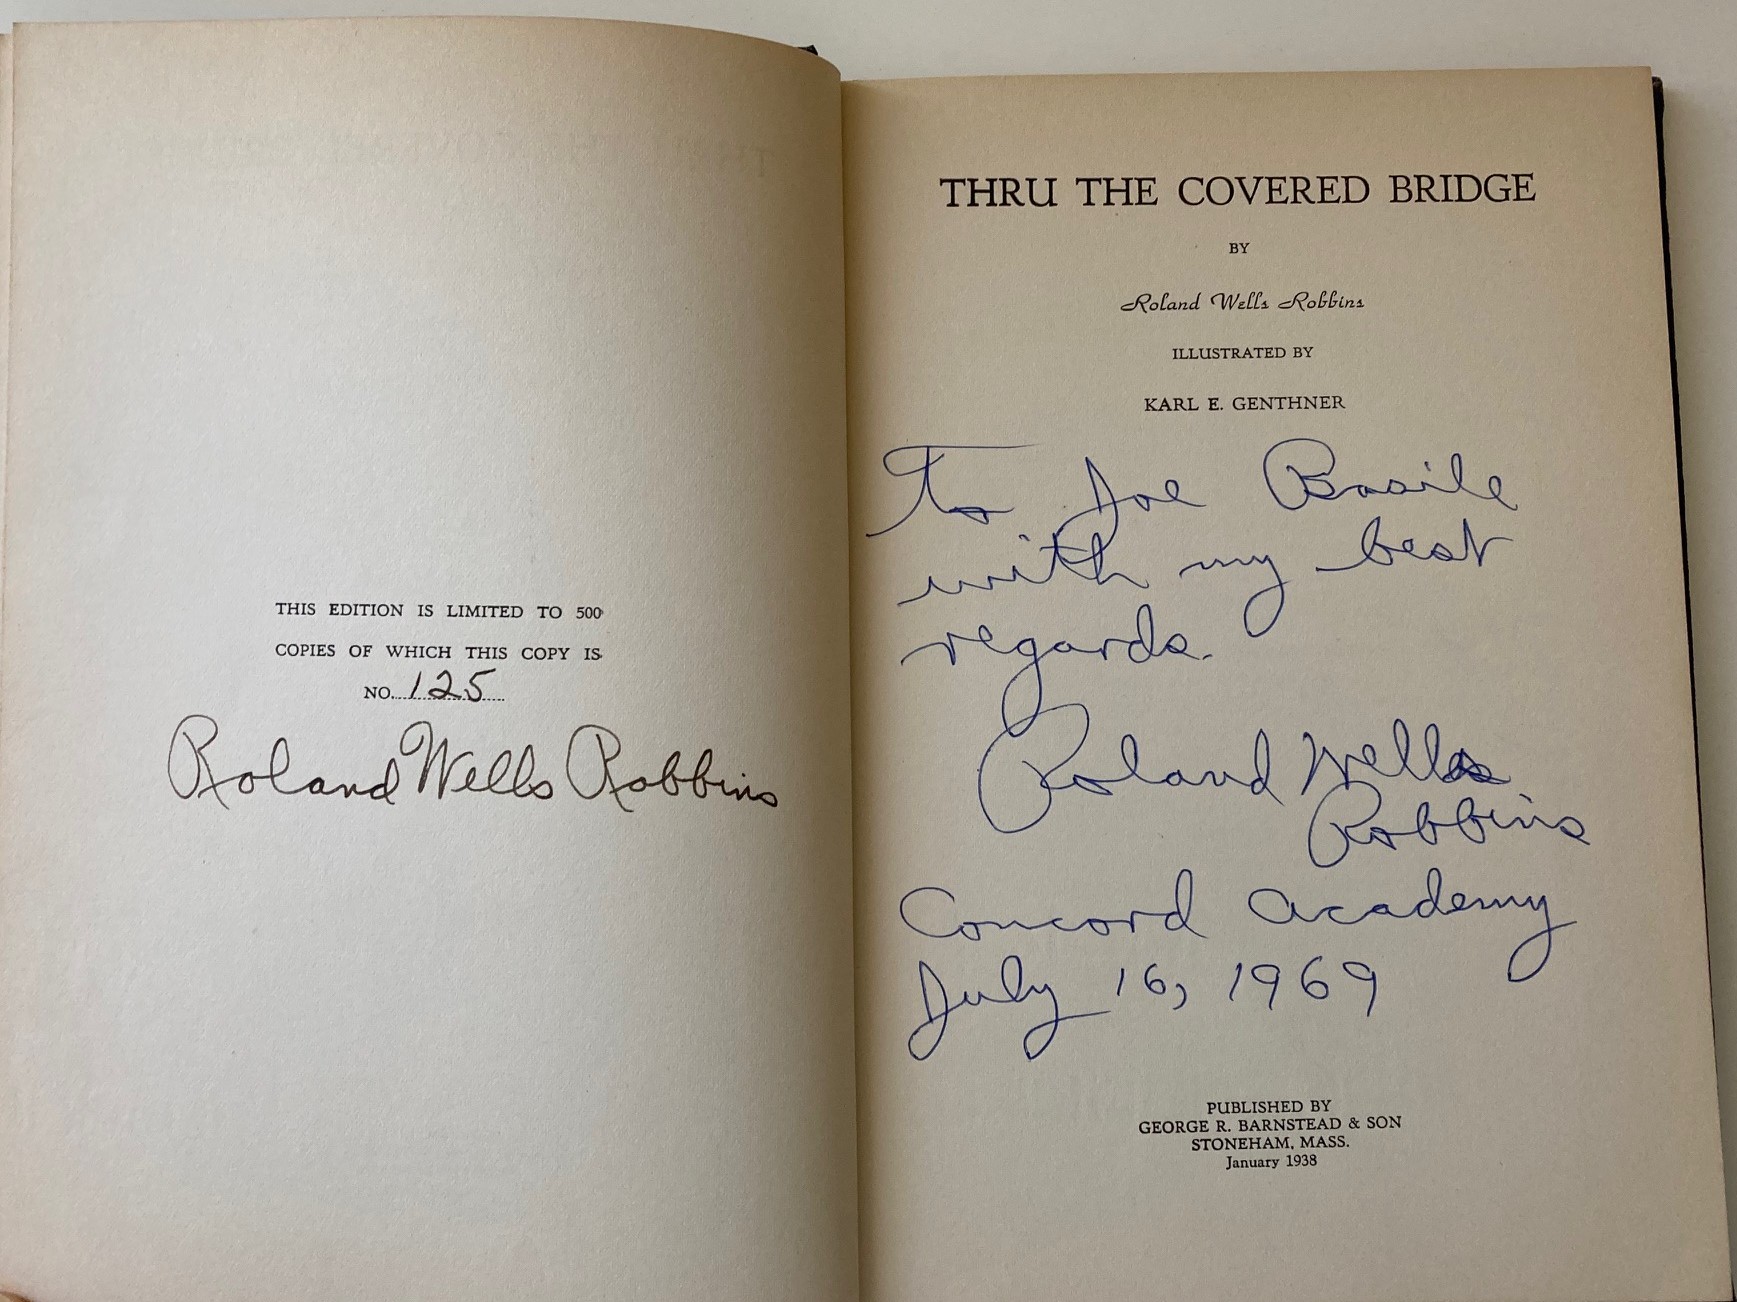 THIS EDITION IS LIMITED TO 500
COPIES OF WHICH THIS COPY IS
NO. 125
Roland Wells Robbins
THRU THE COVERED BRIDGE
BY
Roland Wells Robbins
ILLUSTRATED BY
KARL E. GENTHNER
To Joe Basile
with my best
regards.
Roland Wells
Robbins
Concord Academy
July 16, 1969
PUBLISHED BY
GEORGE R. BARNSTEAD & SON
STONEHAM, MASS.
January 1938